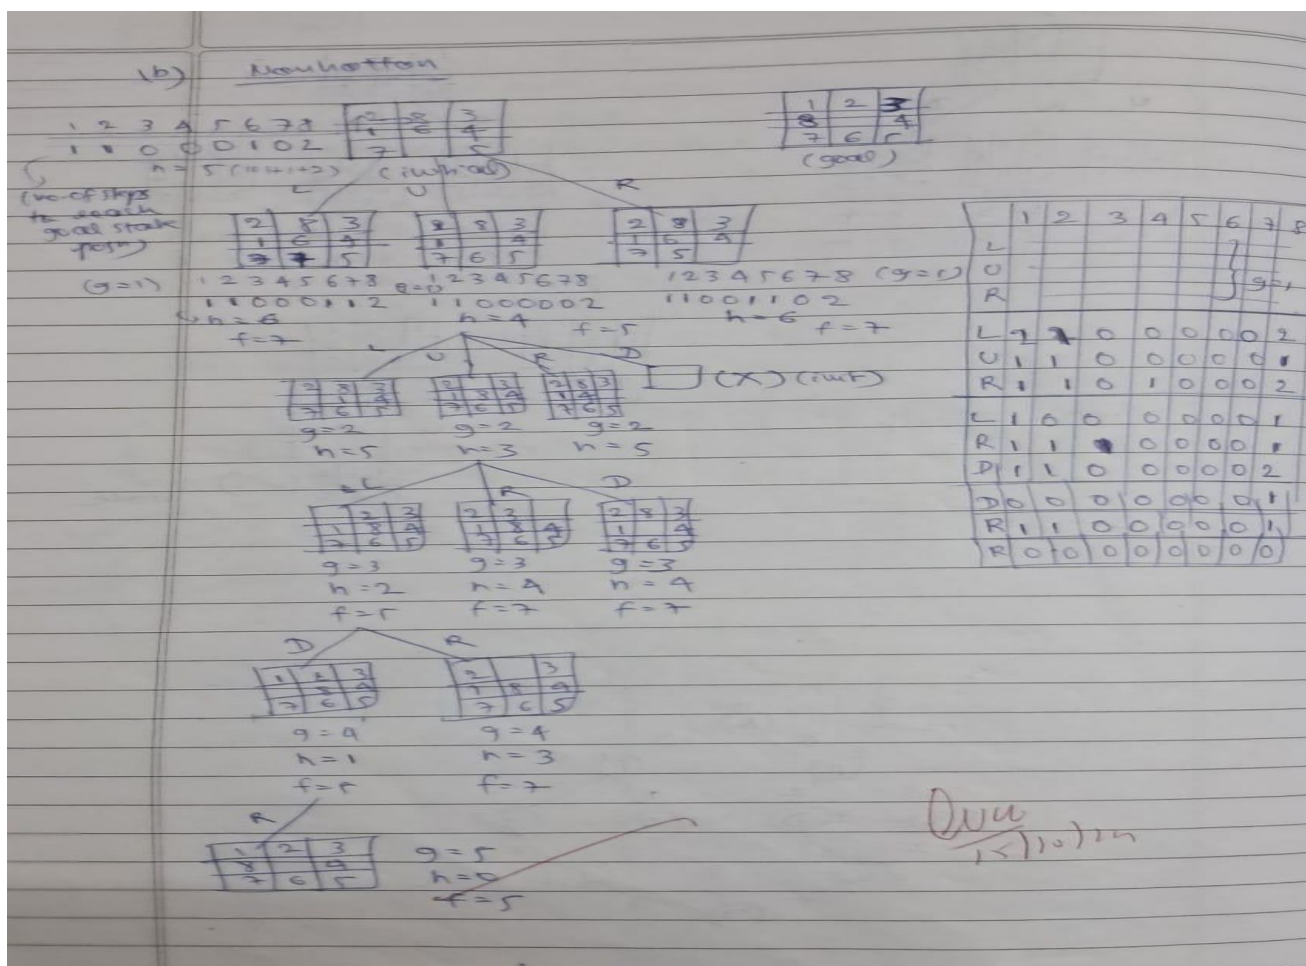 (b) Manhattan
1 2 3 4 5 6 7 8
1 1 0 0 0 1 0 2
2 8 3
1 6 4
7 5
(initial)
1 2 3
8 4
7 6 5
(goal)
h = 5 (1+1+1+2)
(no. of steps
to reach
goal state
posn)
L U R
2 8 3
1 6 4
7 5
2 8 3
1 4
7 6 5
2 8 3
1 6 4
7 5
(g=1) 1 2 3 4 5 6 7 8
1 1 0 0 0 1 1 2
h = 6
f = 7
1 2 3 4 5 6 7 8
1 1 0 0 0 0 0 2
h = 4
f = 5
1 2 3 4 5 6 7 8 (g=1)
1 1 0 0 1 1 0 2
h = 6
f = 7
L U R D
2 8 3
1 4
7 6 5
2 3
1 8 4
7 6 5
2 8 3
1 4
7 6 5
(X) (init)
g=2 g=2 g=2
h=5 h=3 h=5
L R D
2 3
1 8 4
7 6 5
2 3
1 8 4
7 6 5
2 8 3
1 4
7 6 5
g=3 g=3 g=3
h=2 h=4 h=4
f=5 f=7 f=7
D R
1 2 3
8 4
7 6 5
2 3
1 8 4
7 6 5
g=4 g=4
h=1 h=3
f=5 f=7
R
1 2 3
8 4
7 6 5
g=5
h=0
f=5
1 2 3 4 5 6 7 8
L
U g=1
R
L 2 1 0 0 0 0 0 2
U 1 1 0 0 0 0 0 1
R 1 1 0 1 0 0 0 2
L 1 0 0 0 0 0 0 1
R 1 1 1 0 0 0 0 1
D 1 1 0 0 0 0 0 2
D 0 0 0 0 0 0 0 1
R 1 1 0 0 0 0 0 1
R 0 0 0 0 0 0 0 0